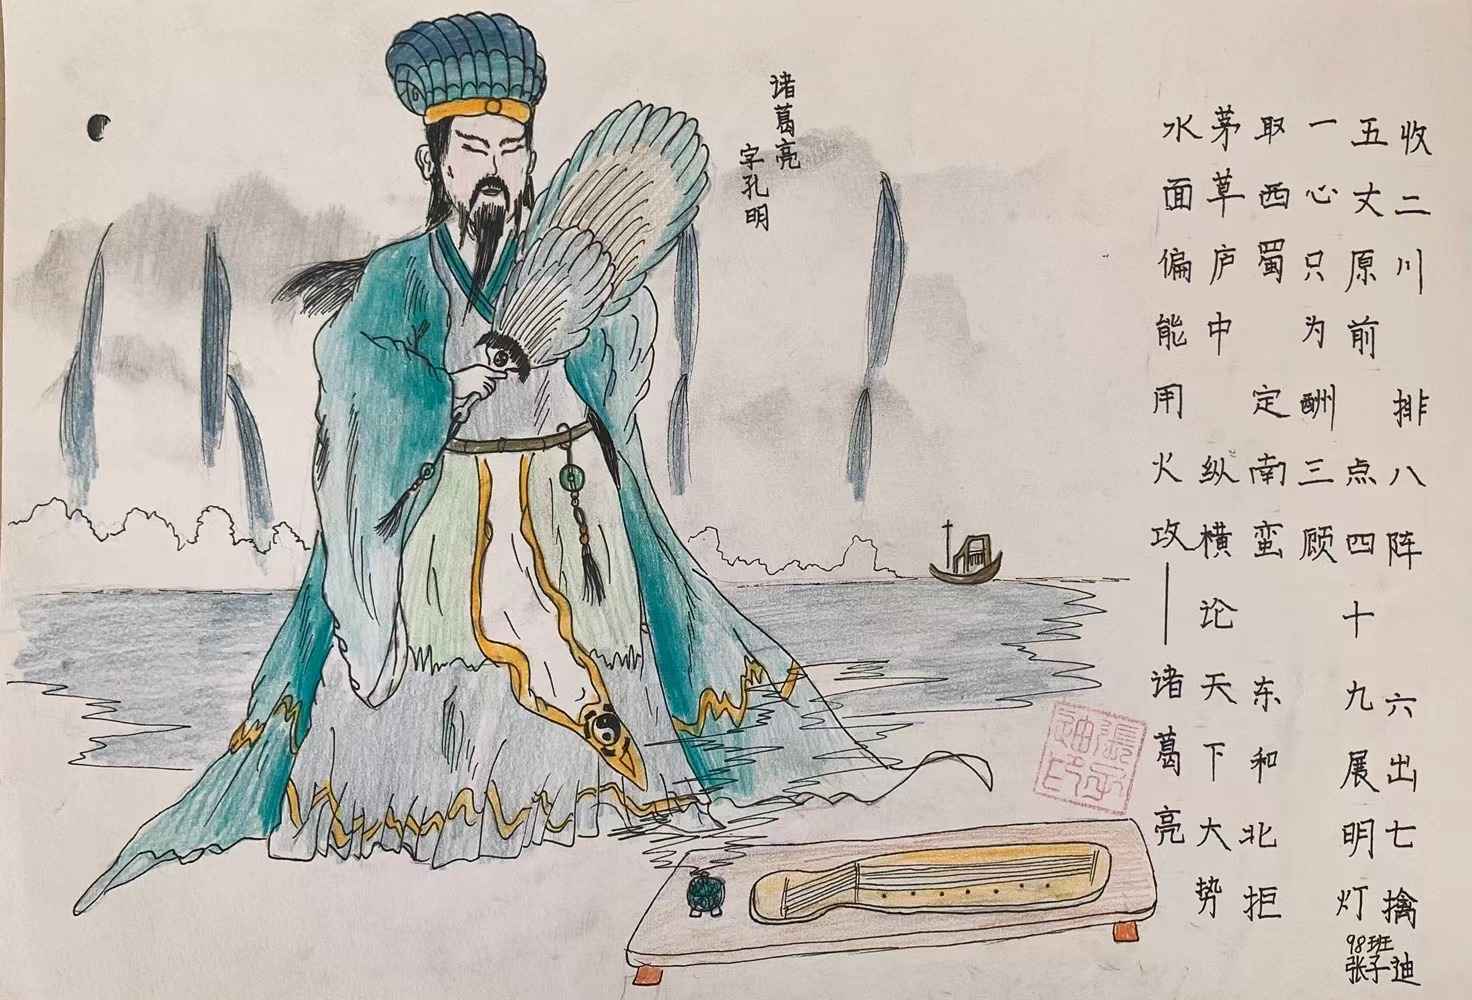 收二川 排八阵 六出七擒
五丈原前 点四十九展明灯
一心只为酬三顾
取西蜀 定南蛮 东和北拒
茅草庐中 纵横论天下大势
水面偏能用火攻——诸葛亮
诸葛亮
字孔明
98班
张子迪
張子
迪印